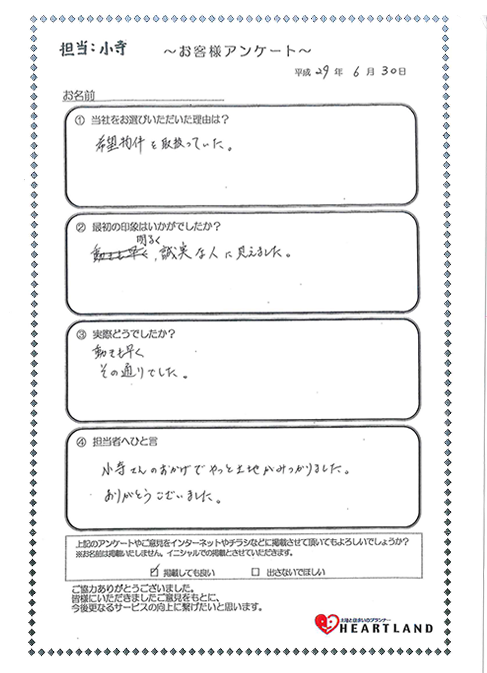 担当:小寺
～お客様アンケート～
平成 29 年 6 月 30 日
お名前
① 当社をお選びいただいた理由は?
希望物件を取扱っていた。
② 最初の印象はいかがでしたか?
明るく
動きも早く、誠実な人に見えました。
③ 実際どうでしたか?
動きも早く
その通りでした。
④ 担当者へひと言
小寺さんのおかげでやっと土地がみつかりました。
ありがとうございました。
上記のアンケートやご意見をインターネットやチラシなどに掲載させて頂いてもよろしいでしょうか?
※お名前は掲載いたしません。イニシャルでの掲載とさせていただきます。
☑ 掲載しても良い □ 出さないでほしい
ご協力ありがとうございました。
皆様にいただきましたご意見をもとに、
今後更なるサービスの向上に繋げたいと思います。
土地と住まいのプランナー
HEARTLAND